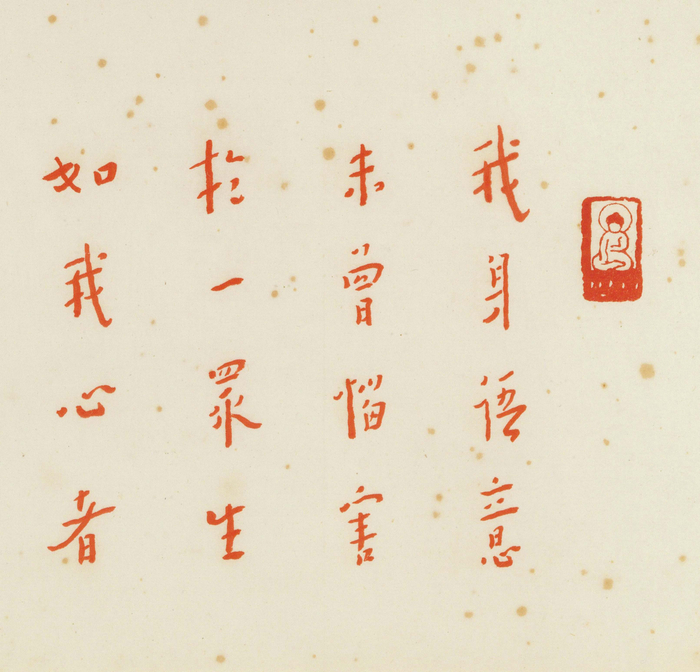 我身語意
未曾惱害
於一眾生
如我心者